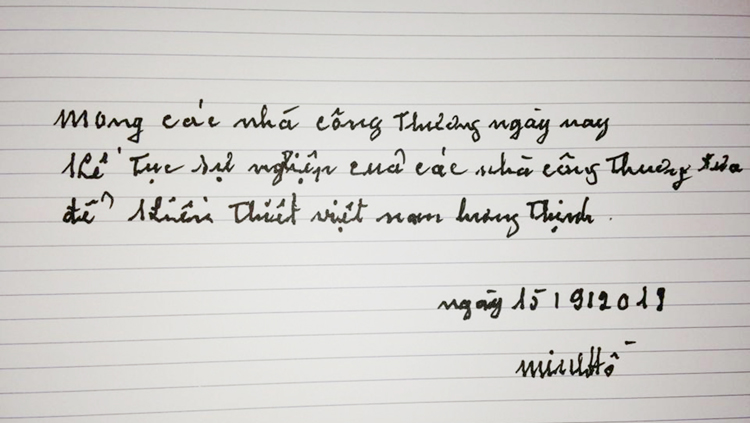 Mong các nhà công thương ngày nay
kế tục sự nghiệp của các nhà công thương xưa
để khiến thiết việt nam hưng thịnh.
ngày 15/9/2019
Minh Hồ